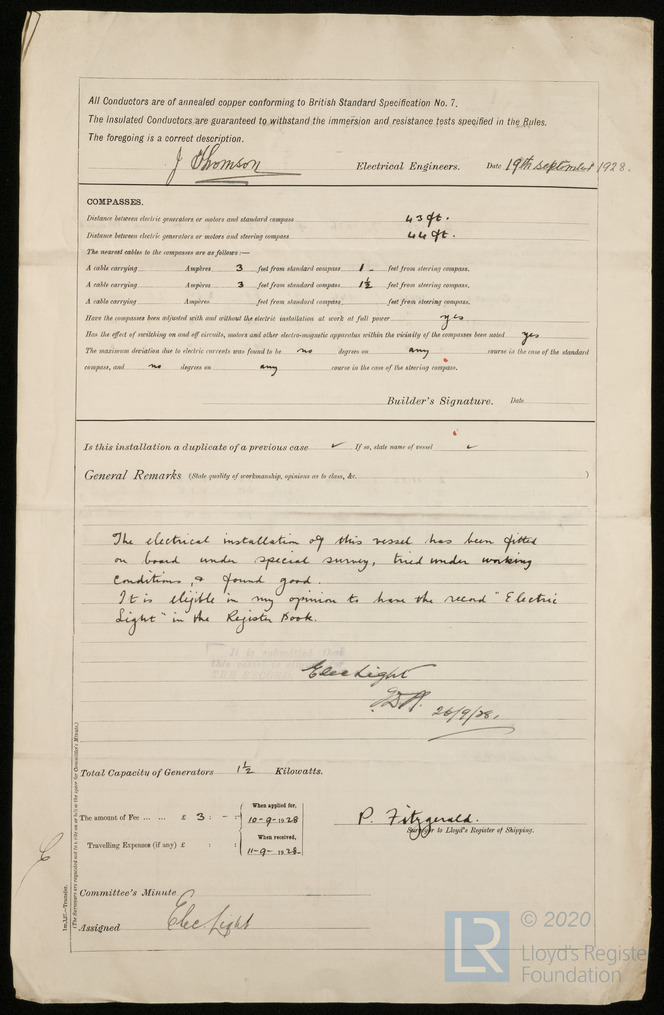 All Conductors are of annealed copper conforming to British Standard Specification No. 7.
The Insulated Conductors are guaranteed to withstand the immersion and resistance tests specified in the Rules.
The foregoing is a correct description.
J Thomson Electrical Engineers. Date 19th September 1928.
COMPASSES.
Distance between electric generators or motors and standard compass 43 ft.
Distance between electric generators or motors and steering compass 44 ft.
The nearest cables to the compasses are as follows:—
A cable carrying Ampères 3 feet from standard compass 1 - feet from steering compass.
A cable carrying Ampères 3 feet from standard compass 1½ feet from steering compass.
A cable carrying Ampères feet from standard compass feet from steering compass.
Have the compasses been adjusted with and without the electric installation at work at full power yes
Has the effect of switching on and off circuits, motors and other electro-magnetic apparatus within the vicinity of the compasses been noted yes
The maximum deviation due to electric currents was found to be no degrees on any course in the case of the standard
compass, and no degrees on any course in the case of the steering compass.
Builder's Signature. Date
Is this installation a duplicate of a previous case ✓ If so, state name of vessel ✓
General Remarks (State quality of workmanship, opinions as to class, &c. )
The electrical installation of this vessel has been fitted
on board under special survey, tried under working
conditions, & found good.
It is eligible in my opinion to have the record "Electric
Light" in the Register Book.
It is submitted that
this vessel is eligible for
THE RECORD
Elec Light
26/9/28.
Total Capacity of Generators 1½ Kilowatts.
The amount of Fee ... ... £ 3 : - : When applied for, 10-9-1928
Travelling Expenses (if any) £ : : When received, 11-9-1928
P. Fitzgerald.
Surveyor to Lloyd's Register of Shipping.
Committee's Minute
Assigned Elec. Light
(The Surveyors are requested not to write on or below the space for Committee's Minute.)
© 2020
LR
Lloyd's Registe
Foundation